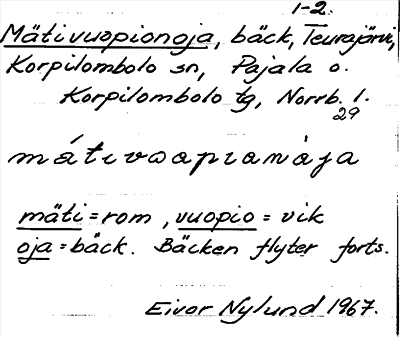 1-2.
Mätivuopionoja, bäck, Teurajärvi,
Korpilombolo sn, Pajala o.
Korpilombolo tg, Norrb. l.
29
mätivuopionoja
mäti = rom, vuopio = vik
oja = bäck. Bäcken flyter forts.
Eivor Nylund 1967.